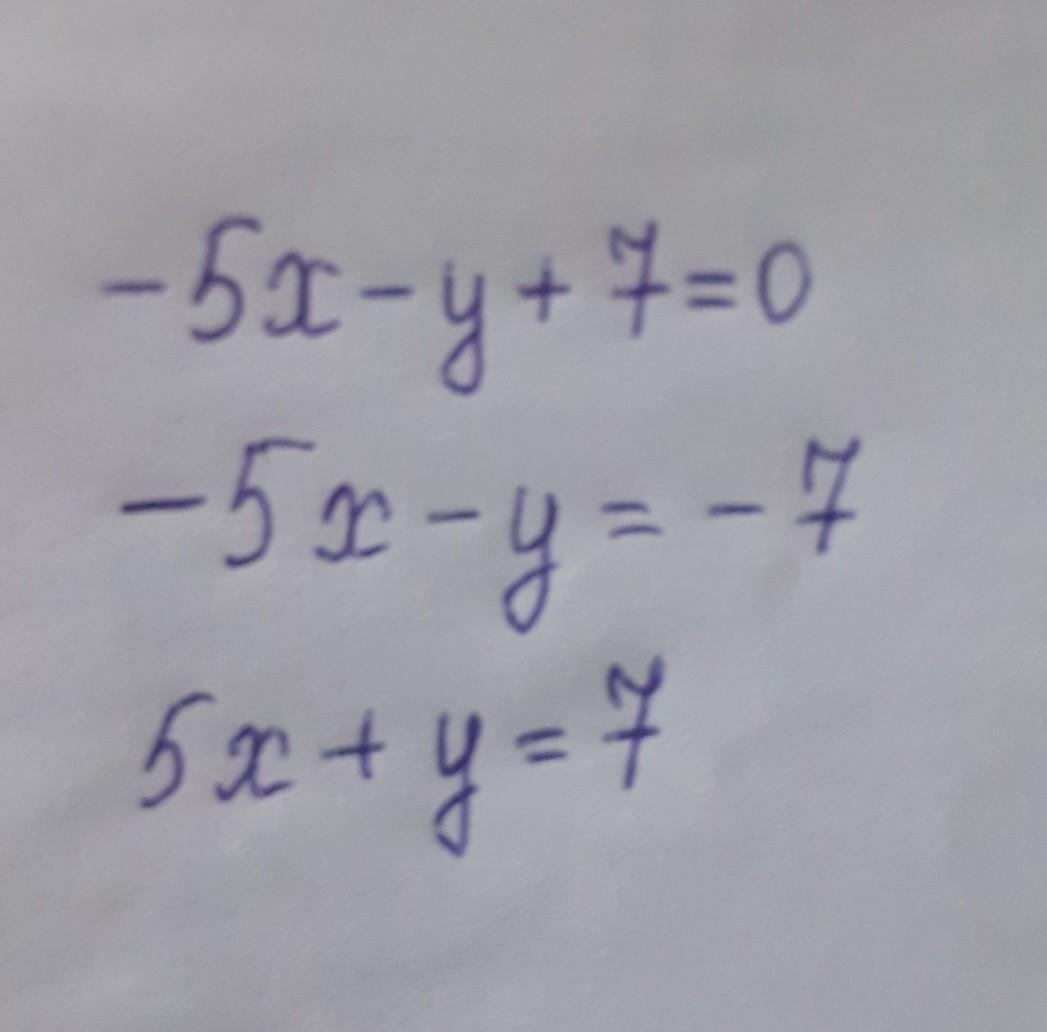 -5x-y+7=0
-5x-y=-7
5x+y=7